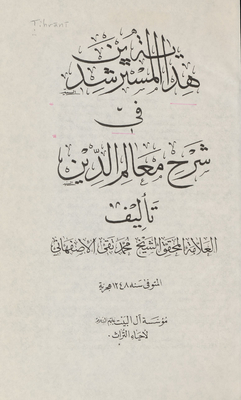 Tihrani
هداية المسترشدين
في
شرح معالم الدين
تأليف
العلامة المحقق الشيخ محمد تقي الاصفهاني
المتوفى سنة ١٢٤٨ هجرية
مؤسسة آل البيت عليهم السلام
لاحياء التراث